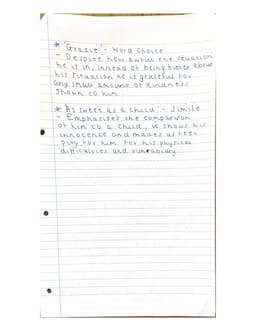 * 'Grazie' - Word Choice
- Despite how awful the situation
he is in, instead of being bitter about
his situation he is grateful for
any small amount of kindness
shown to him
* 'As sweet as a child' - Simile
- Emphasises the comparison
of him to a child, it shows his
innocence and makes us feel
pity for him for his physical
difficulties and vulnerability